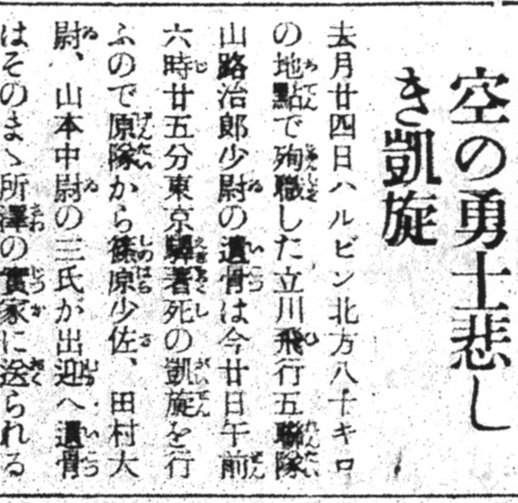 空の勇士悲し
き凱旋
去月廿四日ハルビン北方八十キロ
の地點で殉職した立川飛行五聯隊
山路治郎少尉の遺骨は今廿日午前
六時廿五分東京驛著死の凱旋を行
ふので原隊から篠原少佐、田村大
尉、山本中尉の三氏が出迎へ遺骨
はそのまゝ所澤の實家に送られる